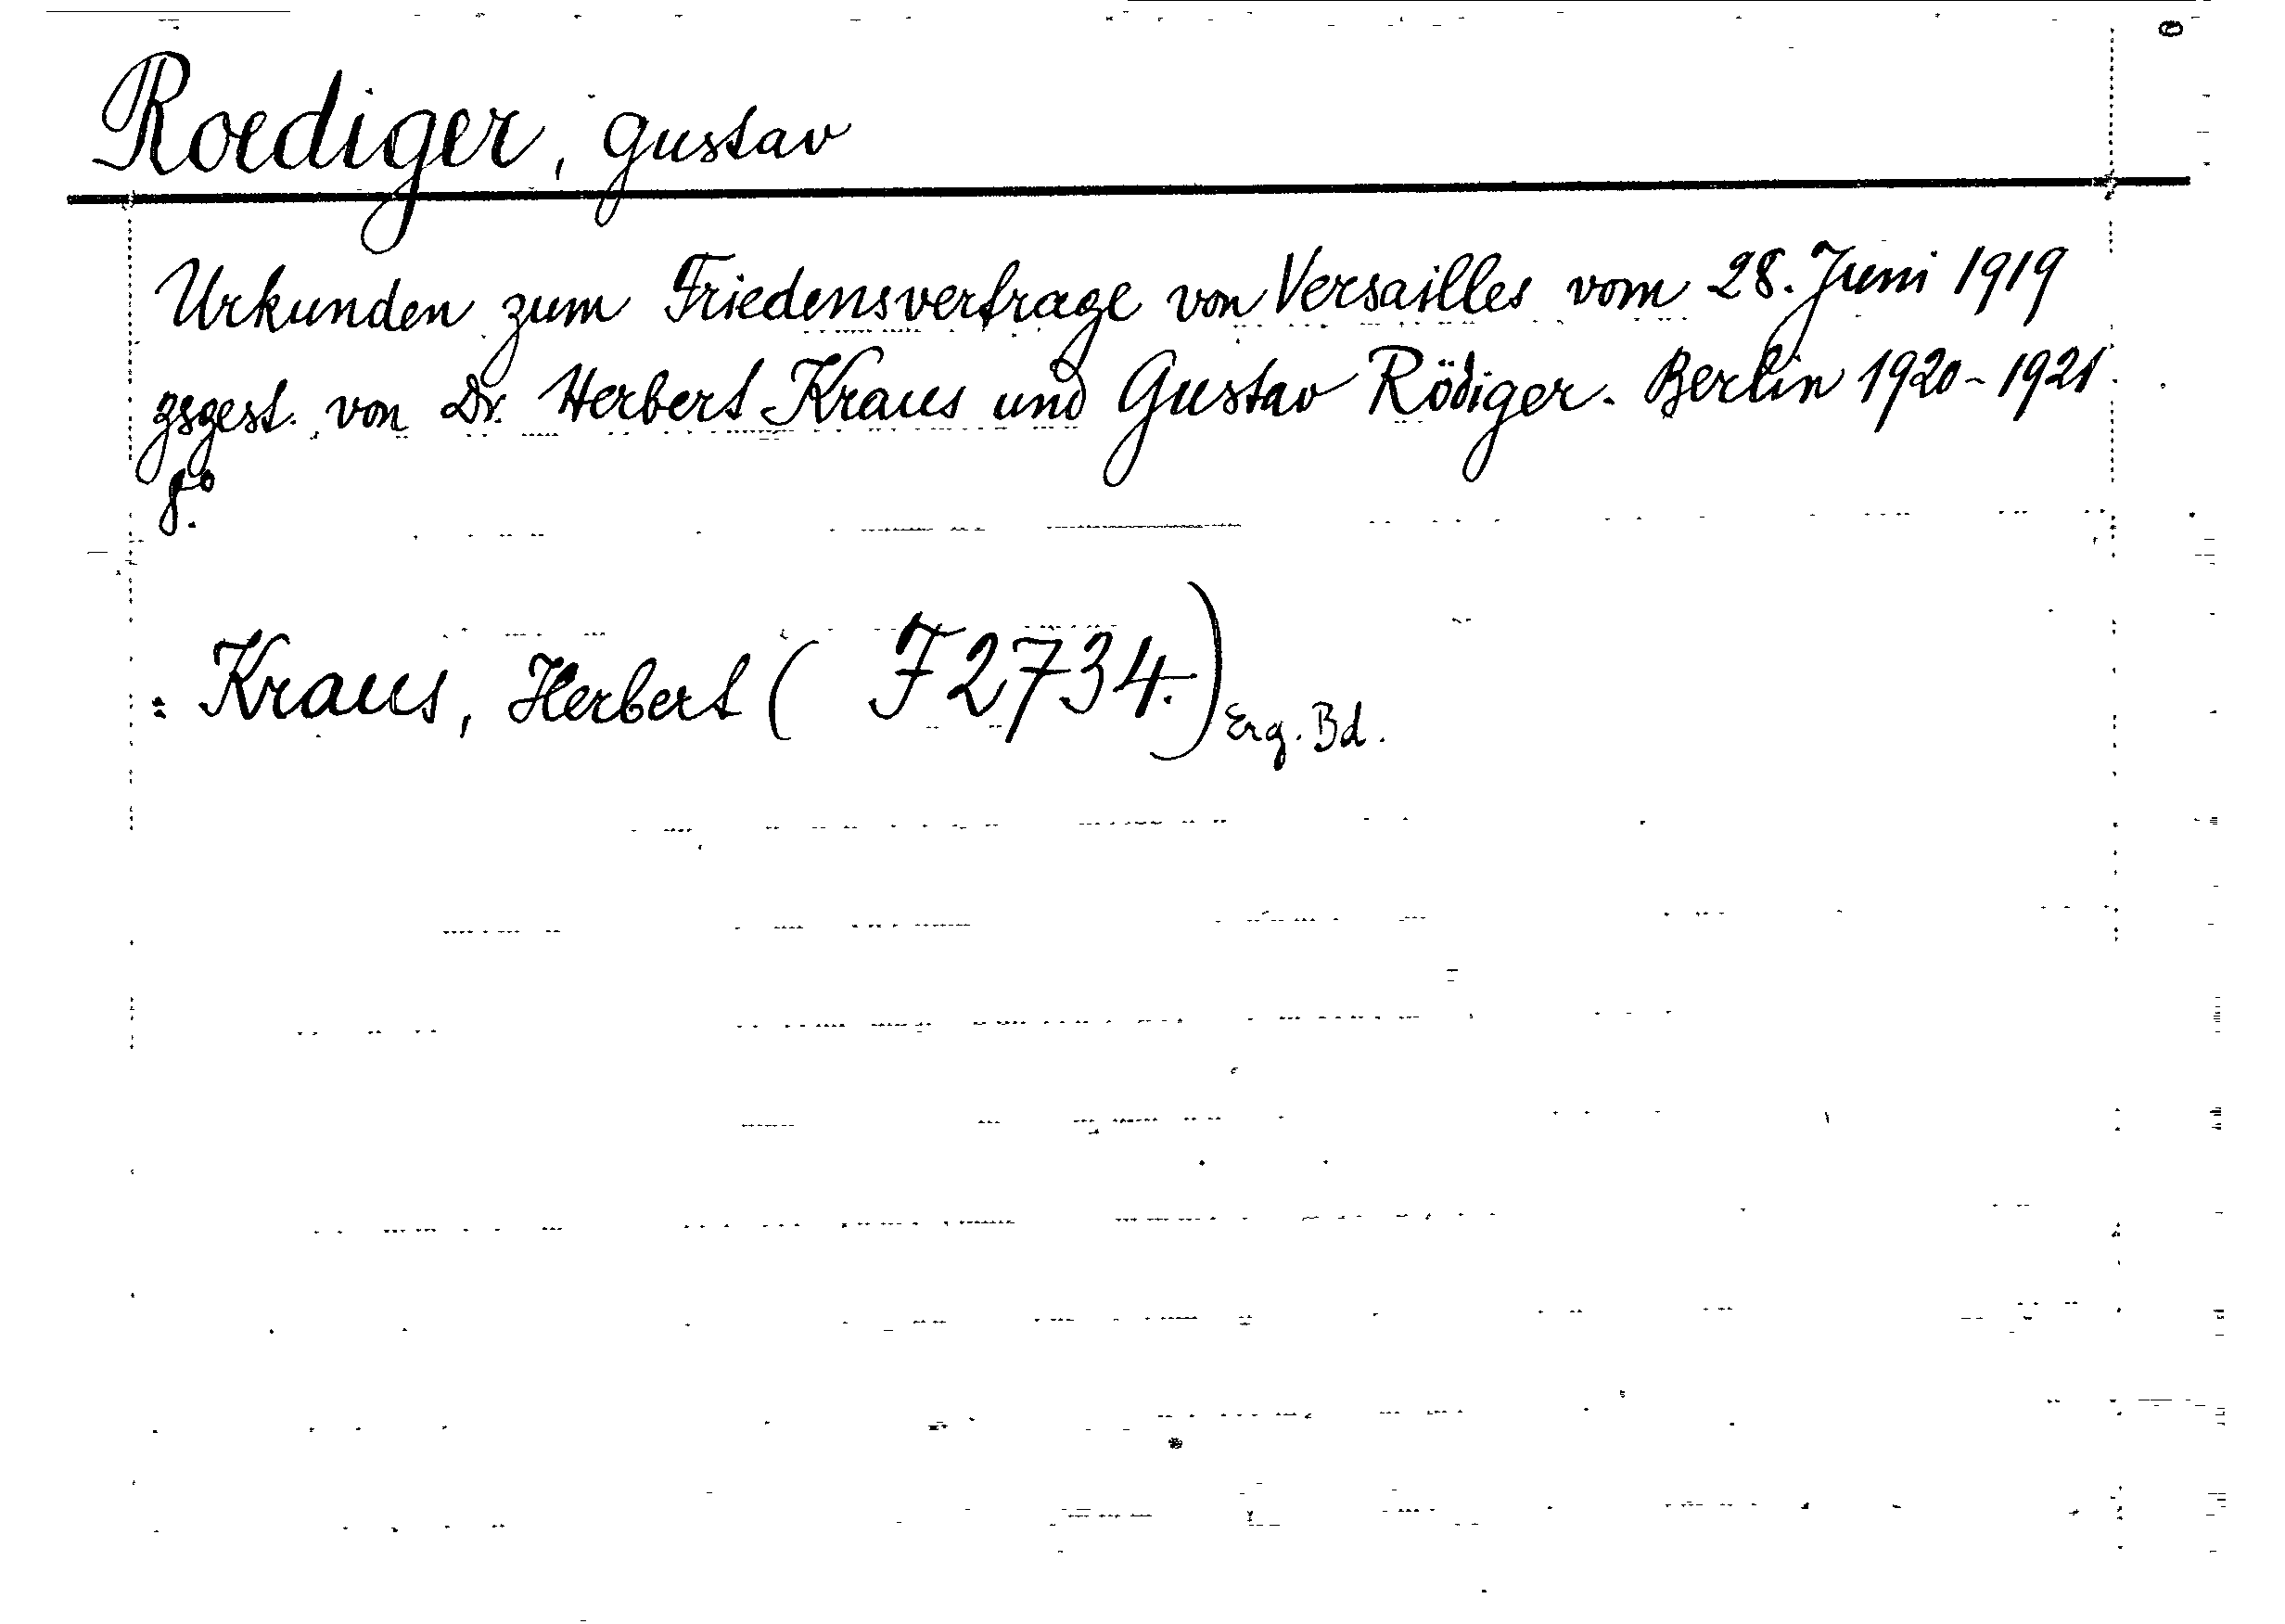 Roediger, Gustav
Urkunden zum Friedensvertrage von Versailles vom 28. Juni 1919
gsgest. von Dr. Herbert Kraus und Gustav Rödiger. Berlin 1920-1921.
8°.
: Kraus, Herbert ( F 2734.) Erg. Bd.